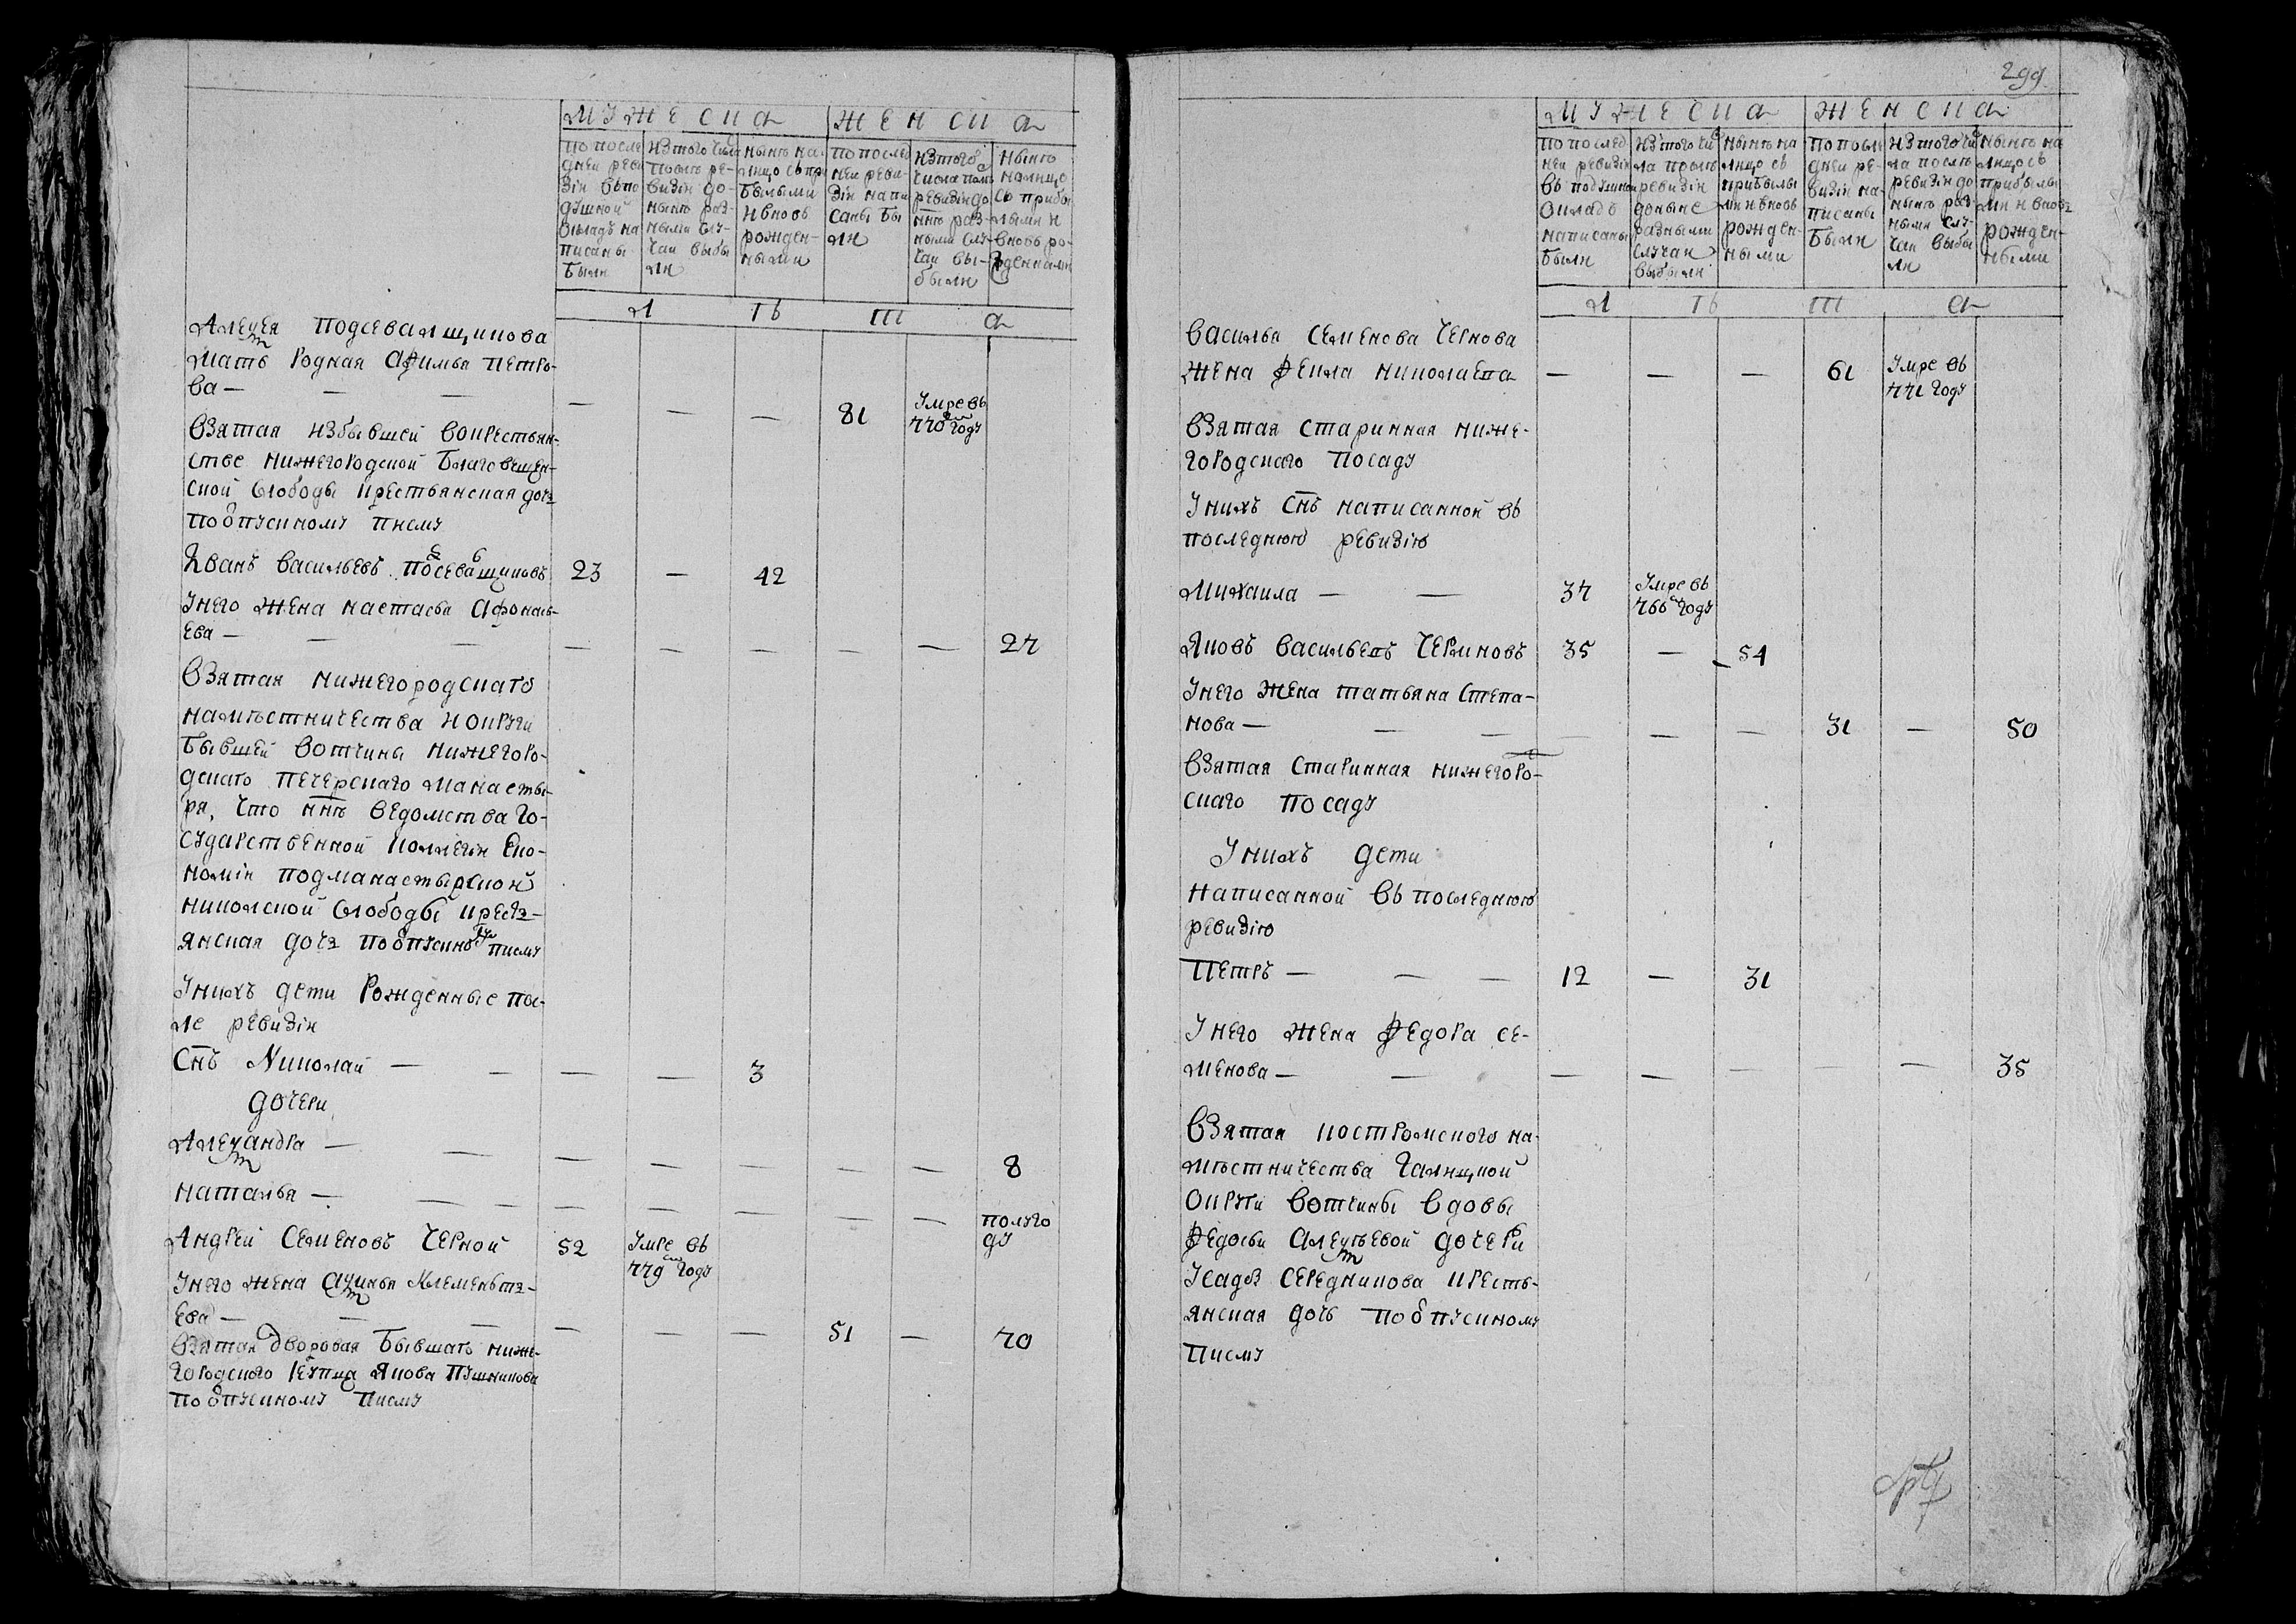 МУЖЕСКА
ЖЕНСКА
по после
дней реви
зiи в по
душной
окладъ на
писаны
были
из того числа
после ре-
визiи до-
ныне раз-
ными слу-
чаи выбы
ли
ныне на-
лицо с при
былыми
и вновь
рожден-
ными
по послед
ней реви-
зiи напи
саны бы
ли
из того
числа после
ревизiи до
ннѣ раз-
ными слу-
чаи вы-
были
ныне
налицо
съ прибы
лыми и
вновь ро-
жденными
Л Ѣ Т А
Алексея Подсевалщикова
мать родная Афимья Петро-
ва — — —
— — — 81 Умре въ 770м году
Взятая из бывшей вокрестьян-
стве нижегородской Благовещен-
ской слободы крестьянская дочь
по отпускному писму
Иванъ Васильевъ Посевальщиковъ 23 — 42
У него жена Настасья Афонась-
ева — — — — — — — — 27
Взятая нижегородскаго
наместничества и округи
бывшей вотчины нижегоро-
дскаго Печерскаго манасты-
ря, что ннѣ ведомства го-
сударственной коллегiи еко-
номiи подманастырской
Николской слободы кресть-
янская дочь по отпускному писму
У нихъ дети рожденные пос-
ле ревизiи
Снъ Николай — — — — 3
дочери
Александра — — — — — — — 8
Наталья — — — — — — — — полуго
ду
Андрей Семеновъ Черной 52 Умре въ
779м году
У него жена Акулина Клементь-
ева — — — — — — 51 — 70
Взятая дворовая бывшаго ниже-
городского купца Якова Пушникова
по отпускному писму
299
МУЖЕСКА
ЖЕНСКА
по послед
ней ревизiи
въ подушной
окладъ
написаны
были
из того чис
ла после
ревизiи
доныне
разными
случаи
выбыли
ныне на
лицо съ
прибылы
ми и вновь
рожден-
ными
по после
дней ре-
визiи на-
писаны
были
из того чис
ла после
ревизiи до
ныне раз-
ными слу-
чаи выбы
ли
ныне на
лицо съ
прибылы
ми и вновь
рожден-
ными
Л Ѣ Т А
Василья Семенова Чернова
жена Фекла Николаева — — — 61 Умре въ
771 году
Взятая старинная ниже-
городскаго посаду
У нихъ снъ написанной въ
последнюю ревизiю
Михаила — — 37 Умре въ
766м году
Яковъ Васильевъ Черновъ 35 — 54
У него жена Татьяна Степа-
нова — — — — — — 31 — 50
Взятая старинная нижегоро-
скаго посаду
У нихъ дети
написанной въ последнюю
ревизiю
Петръ — — — 12 — 31
У него жена Федора Се-
менова — — — — — — — 35
Взятая костромского на-
местничества Галицкой
округи вотчины вдовы
Федосьи Алексеевой дочери
Усадз Середникова кресть-
янская дочь по отпускному
писму